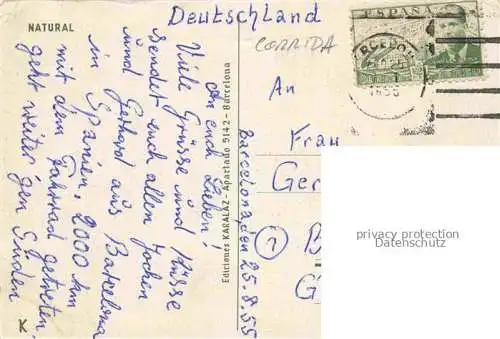 NATURAL
Deutschland
CORRIDA
ESPAÑA
An euch Lieben!
Viele Grüsse und Küsse
sendet euch allen Jochen
und Gerhard aus Barcelona
in Spanien. 2000 km
mit dem Fahrrad getreten.
geht weiter gen Süden
Ediciones KARALAZ - Apartado 5142 - Barcelona
Barcelona den 25.8.55
An
Frau
Ger
B
G
privacy protection
Datenschutz